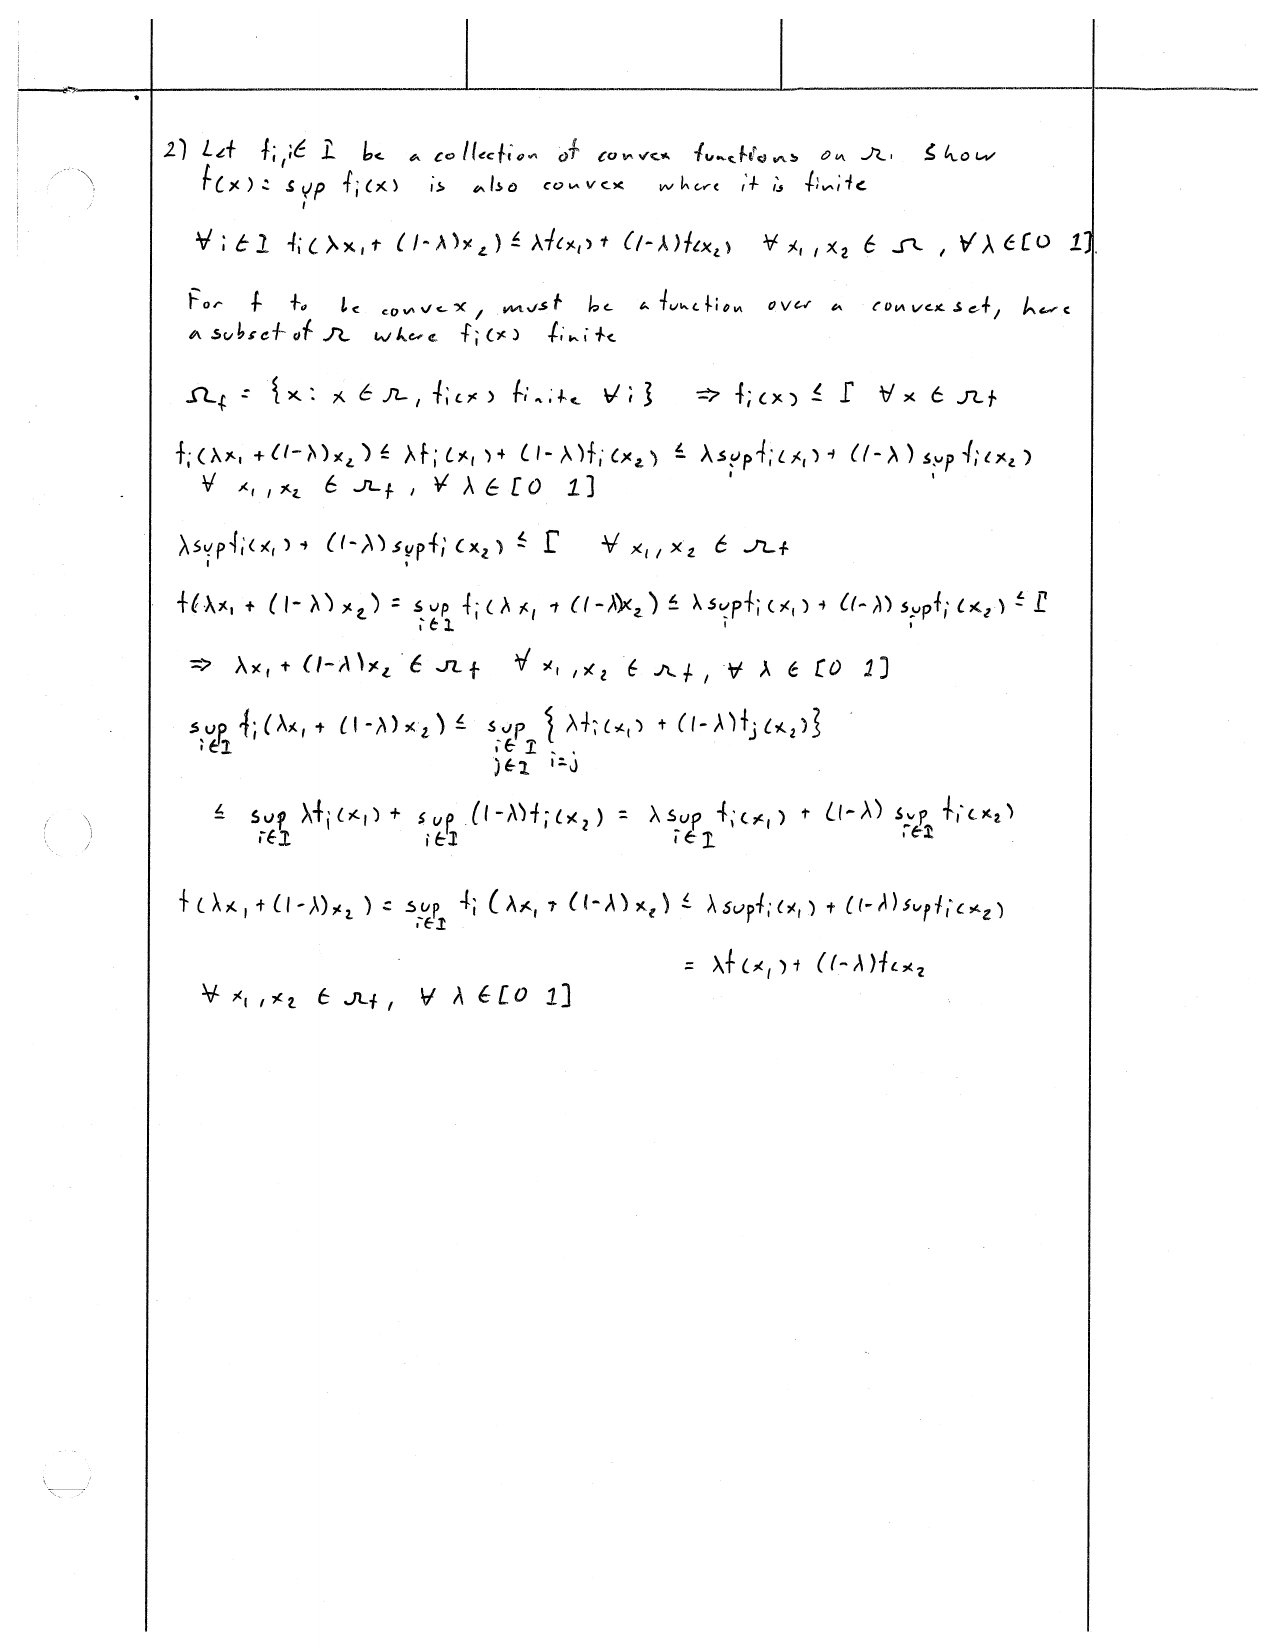 2) Let fᵢ, i ∈ I be a collection of convex functions on Ω. Show
f(x) = sup_i fᵢ(x) is also convex where it is finite
∀ i ∈ I fᵢ(λx₁ + (1-λ)x₂) ≤ λf(x₁) + (1-λ)f(x₂) ∀ x₁, x₂ ∈ Ω, ∀ λ ∈ [0 1]
For f to be convex, must be a function over a convex set, here
a subset of Ω where fᵢ(x) finite
Ω_f = {x : x ∈ Ω, fᵢ(x) finite ∀ i} ⇒ fᵢ(x) ≤ Γ ∀ x ∈ Ω_f
fᵢ(λx₁ + (1-λ)x₂) ≤ λfᵢ(x₁) + (1-λ)fᵢ(x₂) ≤ λ sup_i fᵢ(x₁) + (1-λ) sup_i fᵢ(x₂)
∀ x₁, x₂ ∈ Ω_f, ∀ λ ∈ [0 1]
λ sup_i fᵢ(x₁) + (1-λ) sup_i fᵢ(x₂) ≤ Γ ∀ x₁, x₂ ∈ Ω_f
f(λx₁ + (1-λ)x₂) = sup_{i∈I} fᵢ(λx₁ + (1-λ)x₂) ≤ λ sup_i fᵢ(x₁) + (1-λ) sup_i fᵢ(x₂) ≤ Γ
⇒ λx₁ + (1-λ)x₂ ∈ Ω_f ∀ x₁, x₂ ∈ Ω_f, ∀ λ ∈ [0 1]
sup_{i∈I} fᵢ(λx₁ + (1-λ)x₂) ≤ sup_{i∈I j∈I i=j} {λfᵢ(x₁) + (1-λ)fⱼ(x₂)}
≤ sup_{i∈I} λfᵢ(x₁) + sup_{i∈I} (1-λ)fᵢ(x₂) = λ sup_{i∈I} fᵢ(x₁) + (1-λ) sup_{i∈I} fᵢ(x₂)
f(λx₁ + (1-λ)x₂) = sup_{i∈I} fᵢ(λx₁ + (1-λ)x₂) ≤ λ sup fᵢ(x₁) + (1-λ) sup fᵢ(x₂)
= λf(x₁) + (1-λ)f(x₂
∀ x₁, x₂ ∈ Ω_f, ∀ λ ∈ [0 1]